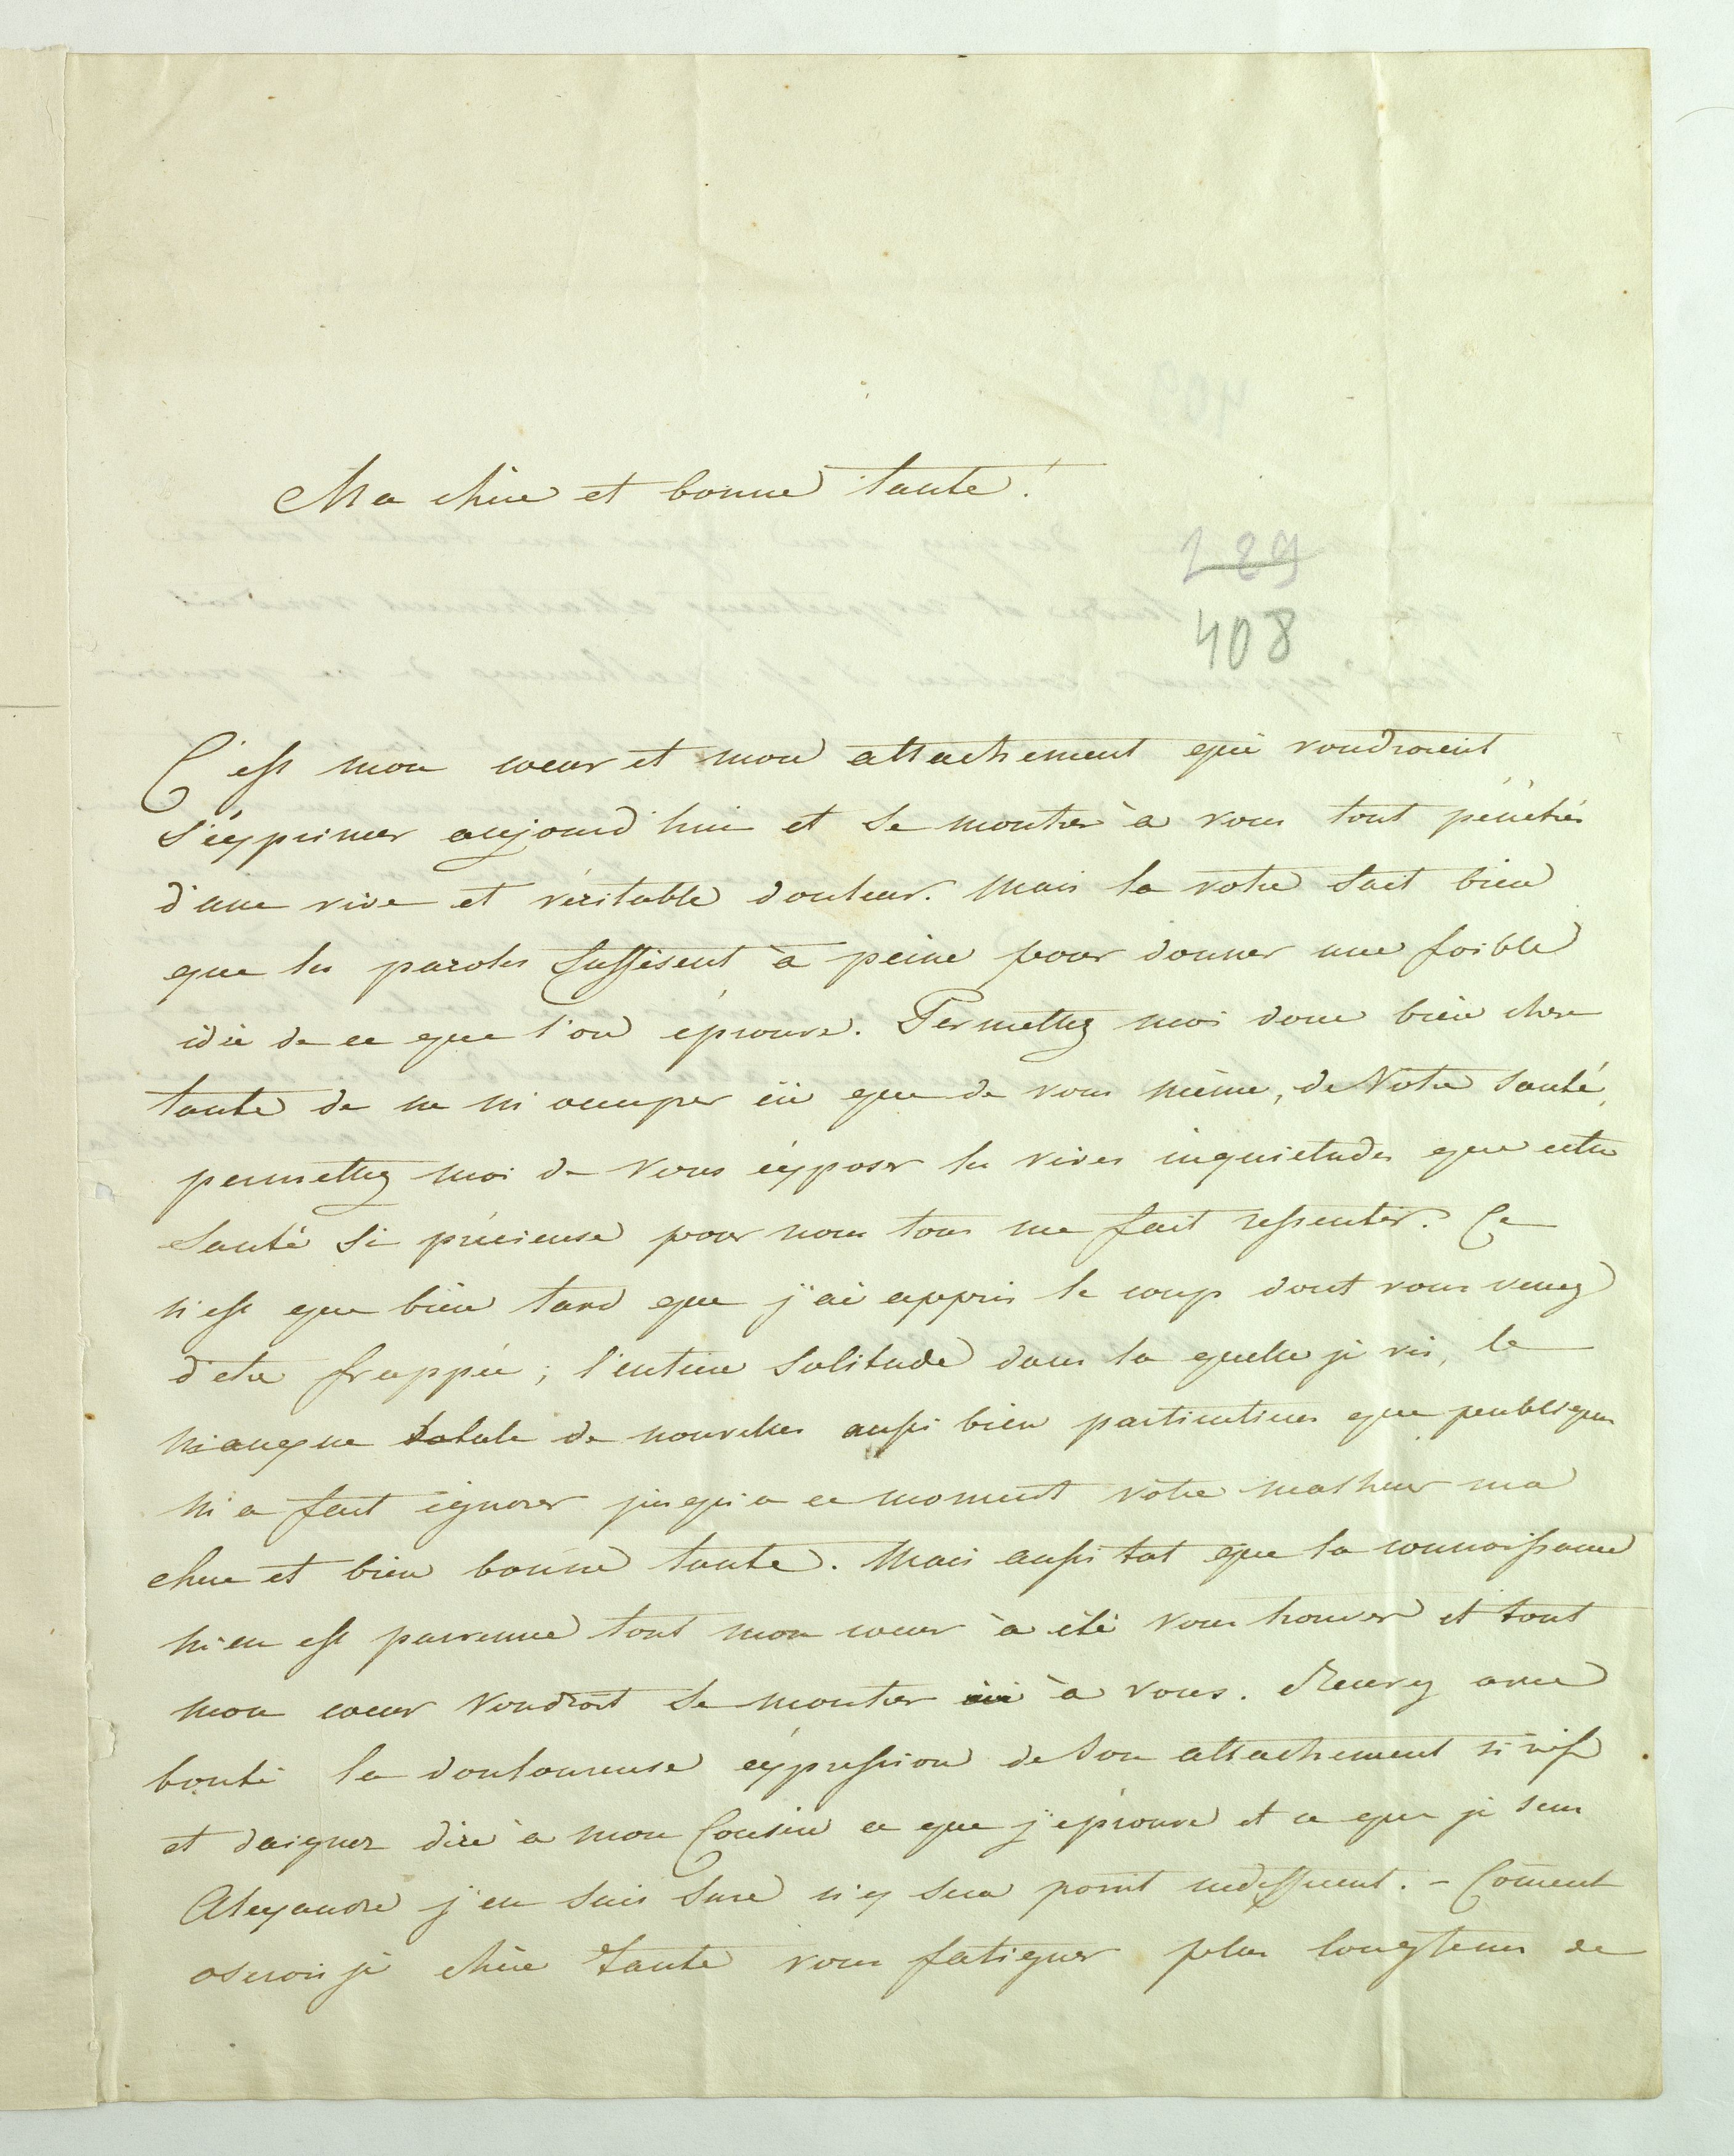 Ma chère et bonne tante!
289
408
C'est mon coeur et mon attachement qui voudroient
s'éxprimer aujourd'hui et se montrer à vous tout pénétrés
d'une vive et véritable douleur. Mais la votre sait bien
que les paroles suffisent à peine pour donner une foible
idée de ce que l'on éprouve. Permettez moi donc bien chere
tante de ne m'occuper ici que de vous même, de Votre santé,
permettez moi de vous éxposer les vives inquietudes que cette
santé si précieuse pour nous tous me fait ressentir. Ce
n'est que bien tard que j'ai appris le coup dont vous venez
d'etre frappée; l'entière solitude dans la quelle je vis, le
manque totale de nouvelles aussi bien particulieres que publiques
m'a fait ignorer jusqu'a ce moment votre malheur ma
chere et bien bonne tante. Mais aussi tot que la connoissance
m'en est parvenue tout mon coeur à été vous trouver et tout
mon coeur voudroit se montrer ici à vous. Recevez avec
bonté la douloureuse éxpression de son attachement si vif
et daignez dire à mon Cousin ce que j'éprouve et ce que je sens
Alexandre j'en suis sure n'y sera point indifferent. - Coment
oserois je chère tante vous fatiguer plus longtems de